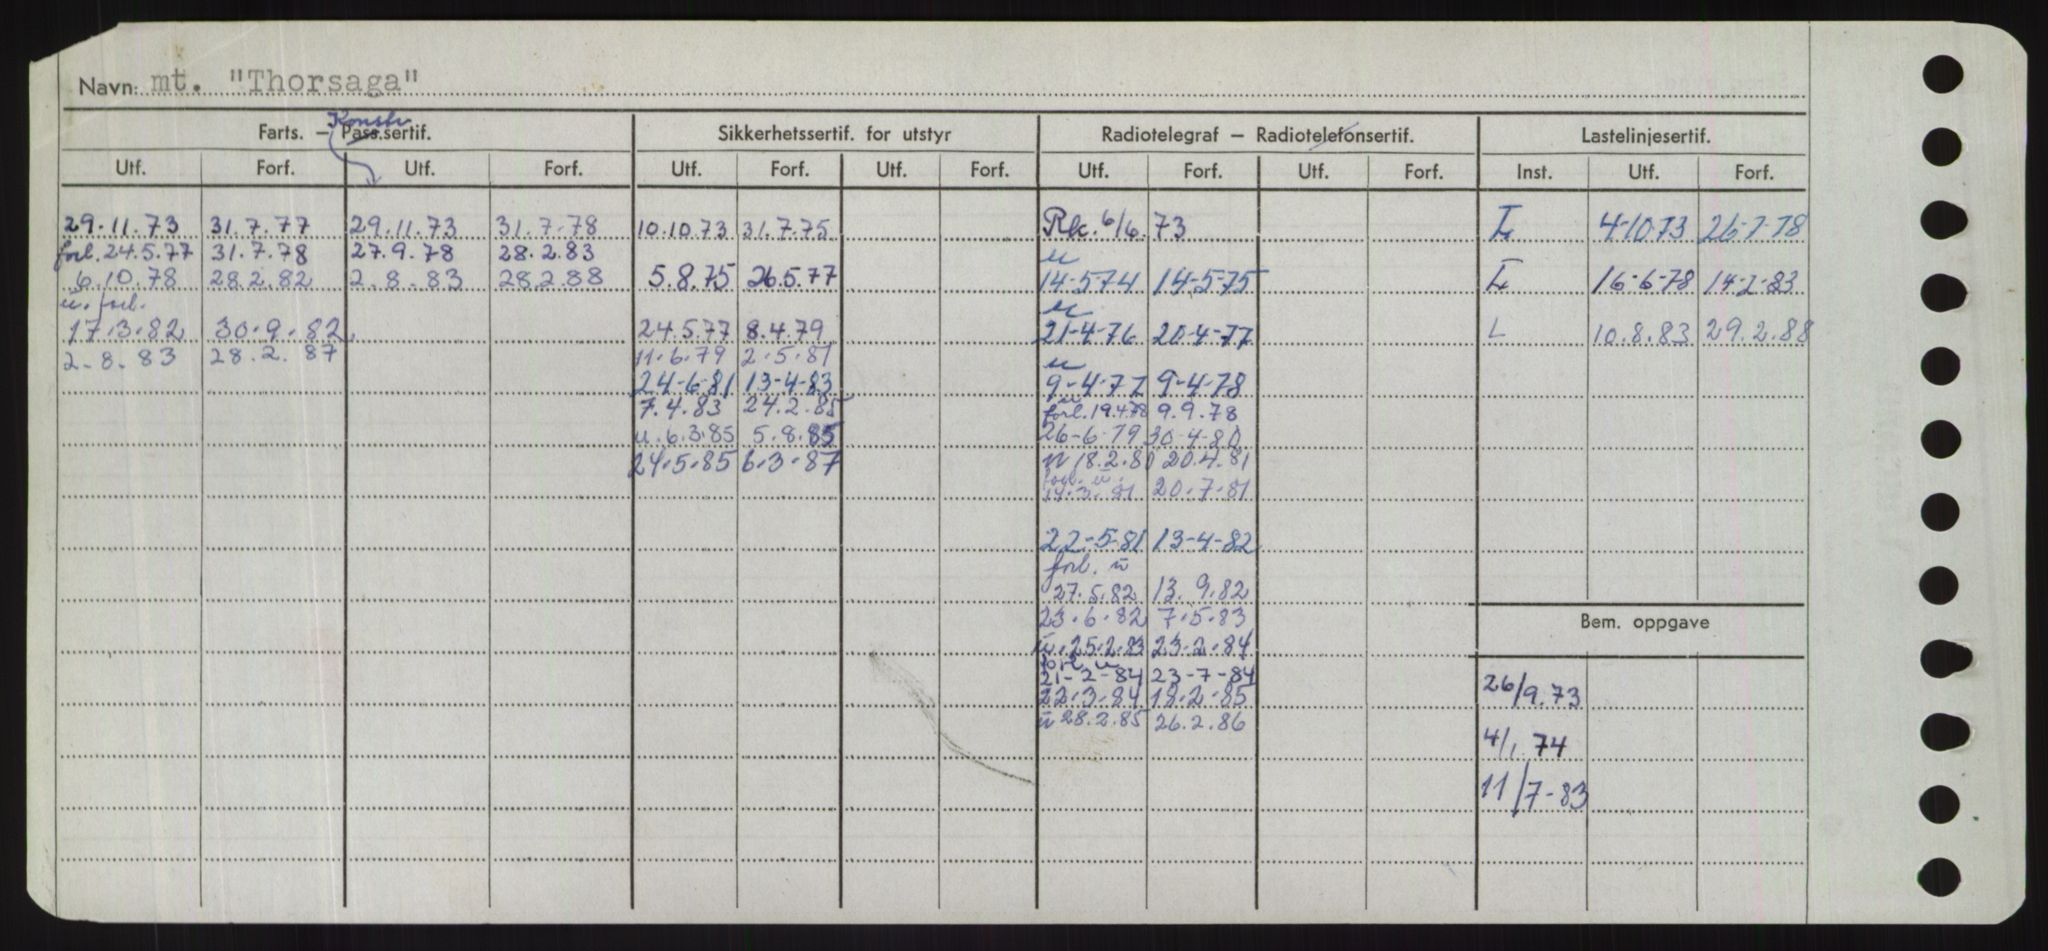 Navn: mt. "Thorsaga"
Konstr
Farts. – Pass.sertif. Sikkerhetssertif. for utstyr Radiotelegraf – Radiotelefonsertif. Lastelinjesertif.
Utf. Forf. Utf. Forf. Utf. Forf. Utf. Forf. Utf. Forf. Utf. Forf. Inst. Utf. Forf.
29.11.73 31.7.77 29.11.73 31.7.78 10.10.73 31.7.75 6/6.73 L 4-10.73 26-7-78
forl. 24.5.77 31.7.78 27.9.78 28.2.83 u
6.10.78 28.2.82 2.8.83 28.2.88 5.8.75 26.5.77 14-5-74 14-5-75 L 16-6-78 14-2-83
u. forl. u
17.3.82 30.9.82 24.5.77 8.4.79 21-4-76 20-4-77 L 10.8.83 29.2.88
2.8.83 28.2.87 11.6.79 2.5.81 u
24-6-81 13-4-83 9-4-77 9-4-78
u
7.4.83 24.2.85 forl. 19.4.78 9.9.78
u. 6.3.85 5.8.85 26-6-79 30-4-80
24.5.85 6.3.87 u 18.2.80 20.4.81
forl. u.
14.3.81 20.7.81
22-5-81 13-4-82
forl. u
27.5.82 13.9.82
23.6.82 7.5.83
Bem. oppgave
u. 25.2.83 23.2.84
forl. u
21-2-84 23-7-84
26/9.73
22.3.84 18.2.85
u 28.2.85 26.2.86
4/1.74
11/7-83